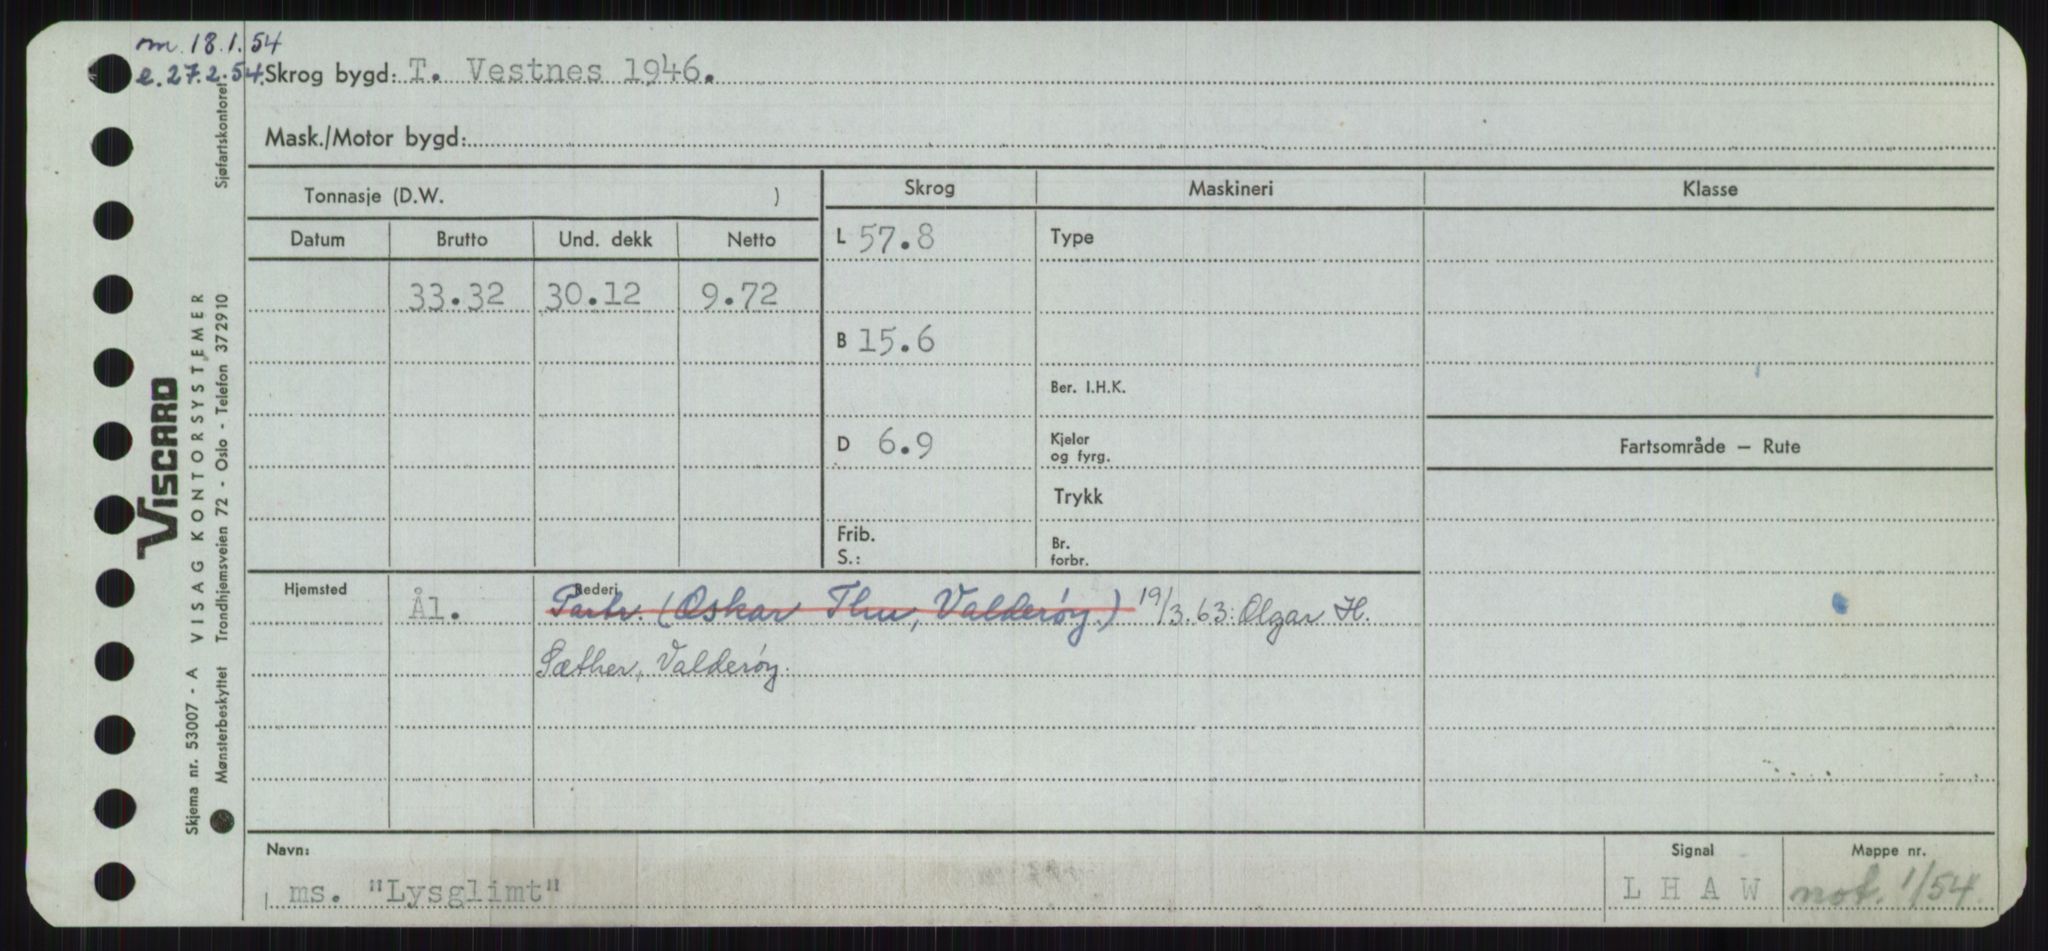 m. 18.1.54
e. 27.2.54.
Skrog bygd: T. Vestnes 1946.
Mask./Motor bygd:
Tonnasje (D.W. )
Skrog
Maskineri
Klasse
Datum
Brutto
Und. dekk
Netto
L 57.8
Type
33.32
30.12
9.72
B 15.6
Ber. I.H.K.
D 6.9
Kjeler
og fyrg.
Fartsområde — Rute
Trykk
Frib.
S.:
Br.
forbr.
Hjemsted
Ål.
Rederi
Partr. (Oskar Thu, Valderøy.) 19/3.63: Olgar H.
Sæther, Valderøy.
Navn:
ms. "Lysglimt"
Signal
L H A W
Mappe nr.
not. 1/54.
Sjøfartskontoret
VISCARD
VISAG KONTORSYSTEMER
Trondhjemsveien 72 - Oslo - Telefon 372910
Skjema nr. 53007 - A
Mønsterbeskyttet